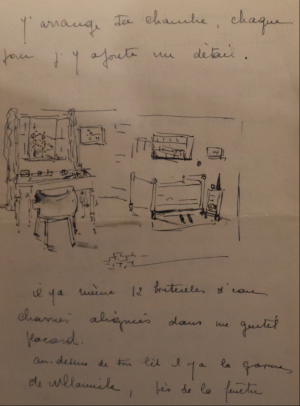 J'arrange ta chambre, chaque
jour j'y ajoute un détail.
il y a même 12 bouteilles d'eau
alignées dans un gentil
placard.
au-dessus de ton lit il y a la
de, près de la fenêtre